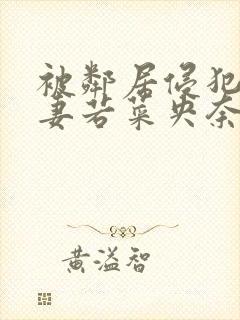 被鄰居侵犯
妻若菜央奈
黄溢智